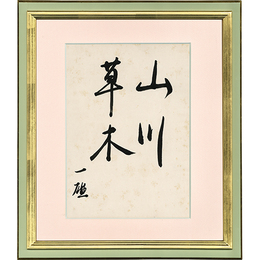 山川
草木
一